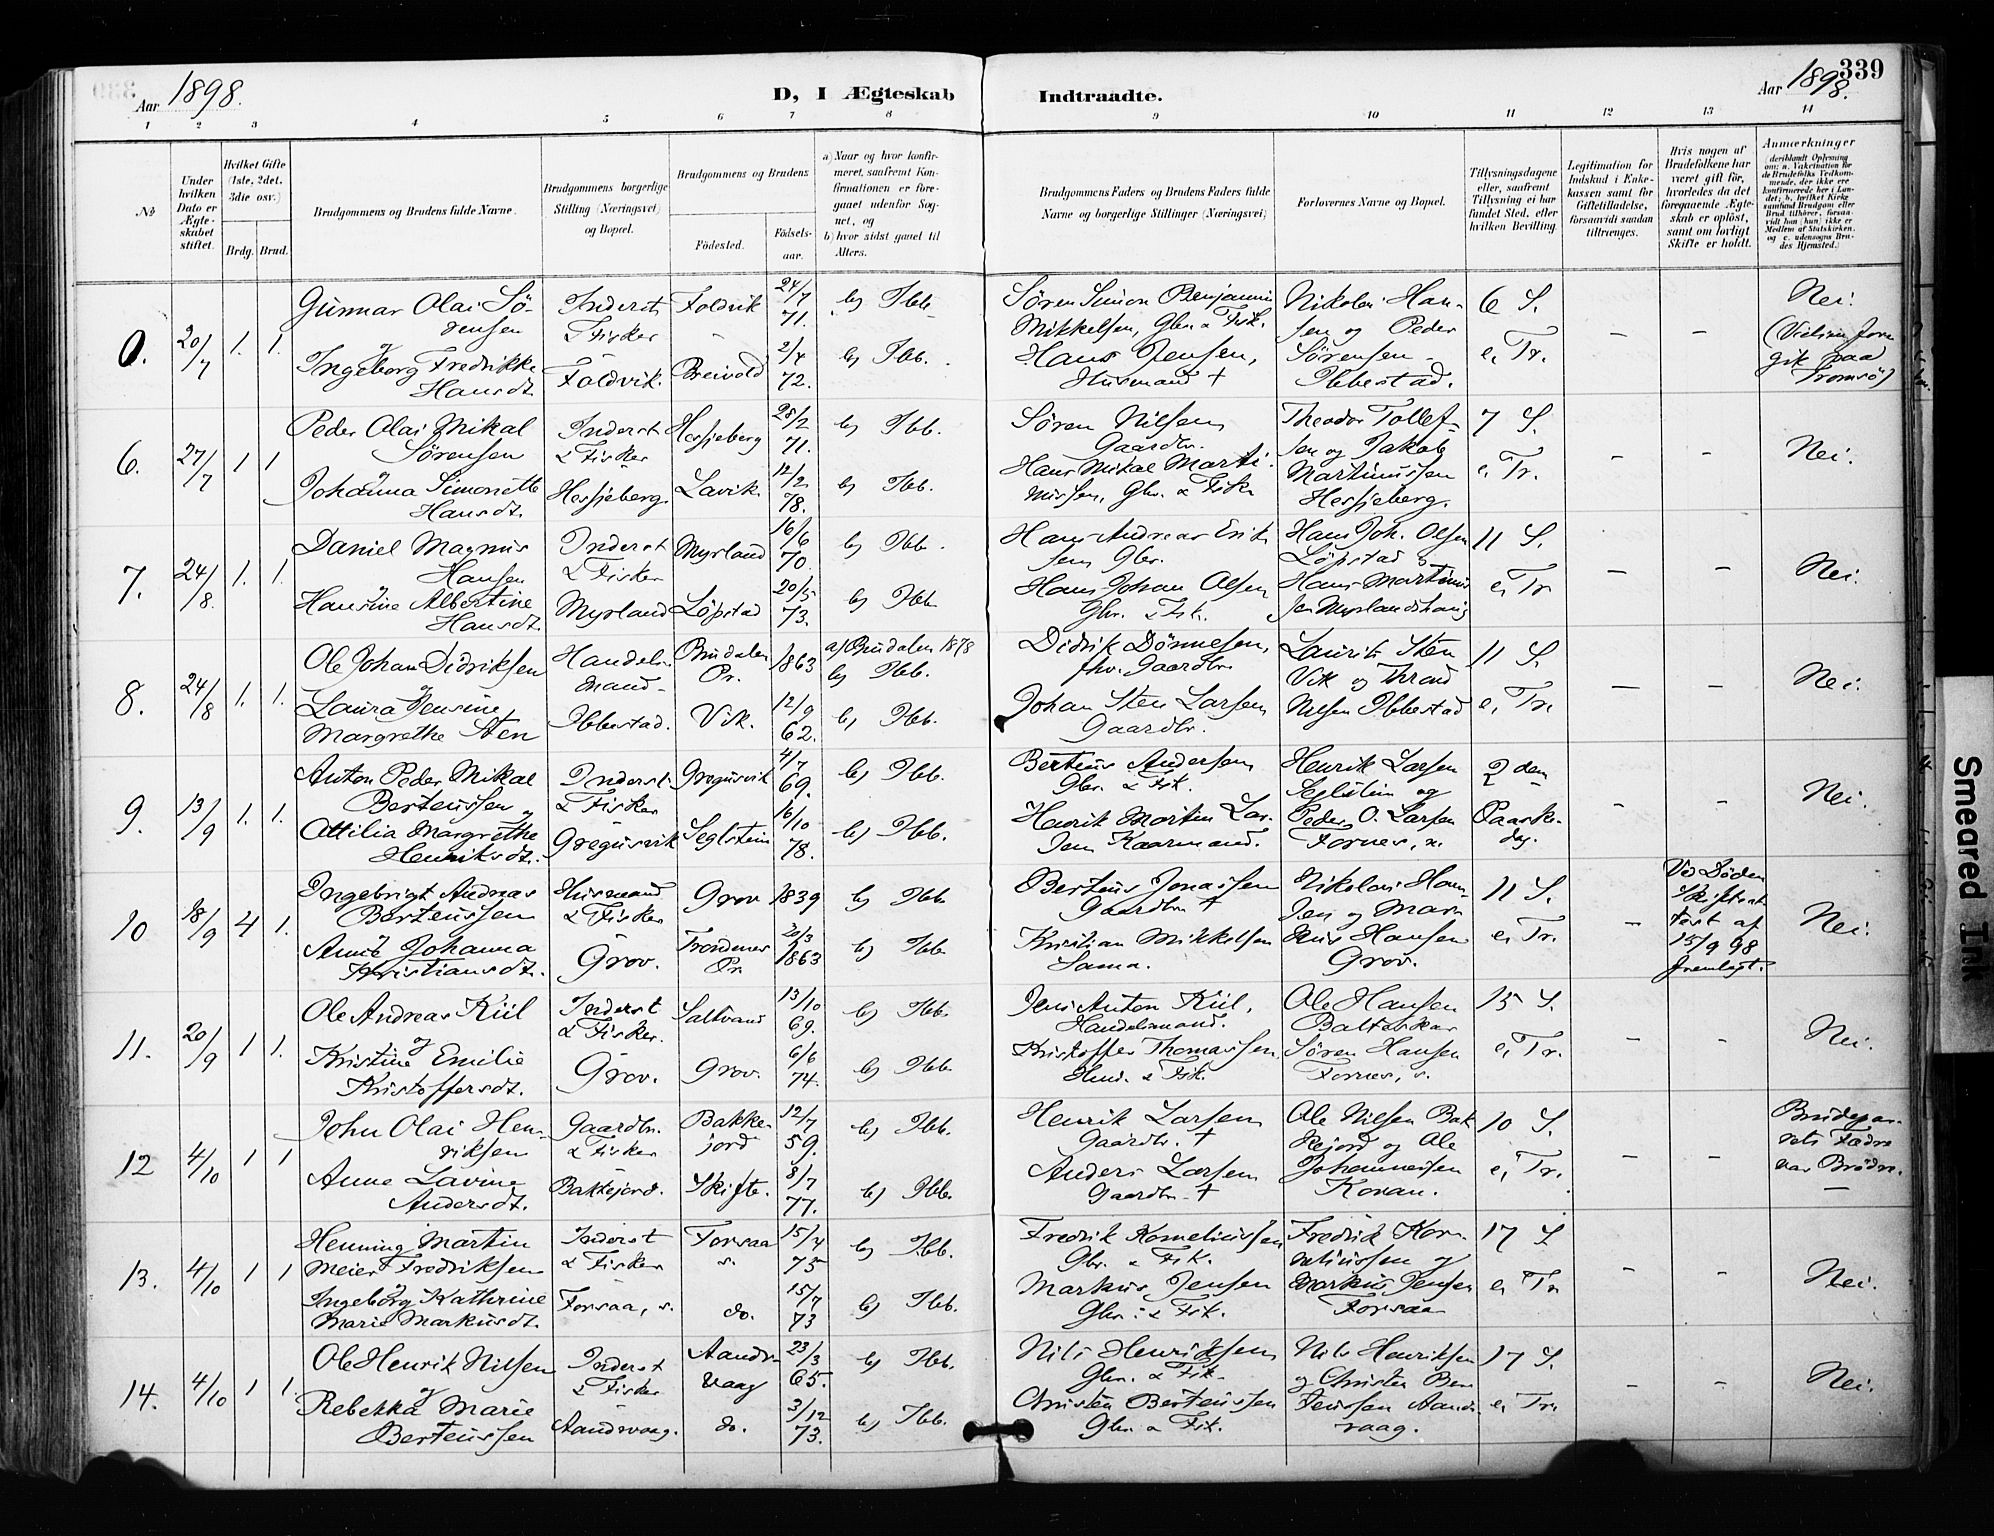 339
Aar 1898.
D, I Ægteskab Indtraadte.
Aar 1898.
1 2 3 4 5 6 7 8 9 10 11 12 13 14
№
Under hvilken Dato er Ægteskabet stiftet.
Hvilket Gifte (1ste, 2det, 3die osv.)
Brdg. Brud.
Brudgommens og Brudens fulde Navne.
Brudgommens borgerlige Stilling (Næringsvei) og Bopæl.
Brudgommens og Brudens
Födested.
Födselsaar.
a) Naar og hvor konfirmeret, saafremt Konfirmationen er foregaaet udenfor Sognet, og
b) hvor sidst gaaet til Alters.
Brudgommens Faders og Brudens Faders fulde Navne og borgerlige Stillinger (Næringsvei)
Forlovernes Navne og Bopæl.
Tillysningsdagene eller, saafremt Tillysning ei har fundet Sted, efter hvilken Bevilling.
Legitimation for Indskud i Enkekassen samt for Giftetilladelse, forsaavidt saadan tiltrænges.
Hvis nogen af Brudefolkene har været gift för, hvorledes da det foregaaende Ægteskab er oplöst, samt om lovligt Skifte er holdt.
Anmærkninger
0. 20/7 1. 1.
Gunnar Olai Sörensen
og
Ingeborg Fredrikke Hansdt.
Inderst & Fisker
Foldvik.
Foldvik 24/7 71. b) Ibb.
Breivold 2/4 72. b) Ibb.
Sören Simon Benjamin Mikkelsen, Gbr. & Fisk.
Hans Jensen, Husmand †
Nikolai Hansen og Peder Sörensen - Ibbestad.
6 S. e. Tr.
– –
Nei.
(Vielsen foregik paa Tromsö)
6. 27/7 1 1
Peder Olai Mikal Sörensen
og
Johanna Simonette Hansdt.
Inderst & Fisker
Hessjeberg.
Hessjeberg 28/2 71. b) Ibb.
Lavik 12/2 78. b) Ibb.
Sören Nilsen Gaardbr.
Hans Mikal Martinussen, Gbr. & Fisk
Theodor Tollefsen og Jakob Martinussen Hessjeberg.
7 S. e. Tr.
– –
Nei.
7. 24/8. 1. 1.
Daniel Magnus Hansen
og
Hansine Albertine Hansdt.
Inderst & Fisker
Myrland
Myrland 16/6 70. b) Ibb.
Löpstad 20/5 73. b) Ibb
Hans Andreas Eriksen Gbr.
Hans Johan Olsen Gbr. & Fisk.
Hans Joh. Olsen Löpstad &
11 S. e. Tr
– –
Nei.
8. 24/8 1. 1.
Ole Johan Didriksen
og
Laura Jensine Margrethe Sten
Handelsmand -
Ibbestad.
Pr. 1863 1878
b) Ibb.
Vik. 12/9 62. b) Ibb.
Didrik Dönnesen, fhv. Gaardbr.
Johan Sten Larsen Gaardbr.
Laurits Sten Vik og Thrond Nilsen Ibbestad
11 S. e. Tr.
– –
Nei.
9. 13/9 1. 1.
Anton Peder Mikal Berteussen og
Attilia Margrethe Henriksdt.
Inderst & Fisker
Gregusvik
Gregusvik 4/7 69. b) Ibb.
Seglstein 16/10 78. b) Ibb.
Berteus Andersen Gbr. & Fisk.
Henrik Martin Larsen Kaarmand.
Henrik Larsen Seglstein og
Peder O. Larsen Fornes, n.
2 den Paaskedag.
– –
Nei.
10 18/9 4 1.
Ingebrigt Andreas Berteussen
og
Anne Johanna Kristiansdt.
Husmand & Fisker
Grov.
Grov 1839 b) Ibb
Trondenes Pr. 20/3 1863 b) Ibb
Berteus Jonassen Gaardbr. †
Kristian Mikkelsen Sama.
Nikolai Hansen og Markus Hansen Grov.
11 S. e. Tr.
–
Ved Döden Skifteattest af 15/9 98 fremlagt.
Nei.
11. 20/9 1 1.
Ole Andreas Kiil
og
Kristine Emilie Kristoffersdt.
Inderst & Fisker.
Grov.
Saltvand 13/10 69. b) Ibb.
Grov. 6/6 74. b) Ibb.
Jens Anton Kiil, Handelsmand.
Kristoffer Thomassen, Husm. & Fisk.
Ole Hansen Baltesкar
Sören Hansen Fornes, s.
15 S. e. Tr.
– –
Nei.
12 4/10 1 1
John Olai Henriksen
Anne Lavine Andersdt.
Gaardbr. & Fisker
Bakkejord.
Bakkejord 12/7 59. b) Ibb.
Skifte. 8/7 77. b) Ibb.
Henrik Larsen Gaardbr. †
Anders Larsen Gaardbr. †
Ole Nilsen Bakkejord og Ole Johannessen Kovan.
10 S. e. Tr.
– –
Brudeparrets Fædre var Brödre.
13. 4/10 1 1
Henning Martin Meier Fredriksen
og
Ingeborg Kathrine Marie Markusdt.
Inderst & Fisker
Forsaa, s.
Forsaa s. 15/4 75 b) Ibb.
do. 15/7 73 b) Ibb.
Fredrik Korneliussen Gbr. & Fisk.
Markus Jensen Gbr. & Fisk.
Fredrik Korneliussen og Markus Jensen Forsaa
17 S e. Tr
– –
Nei.
14. 4/10 1 1.
Ole Henrik Nilsen
og
Rebekka Marie Berteussen
Inderst & Fisker
Aandervaag.
Aandervaag 23/3 65. b) Ibb.
do. 3/12 73. b) Ibb.
Nils Henriksen Gbr. & Fisk.
Christen Berteussen Gbr. & Fisk.
Nils Henriksen og Christen Berteussen Aandervaag.
17 S. e. Tr.
– –
Nei.
Smeared Ink